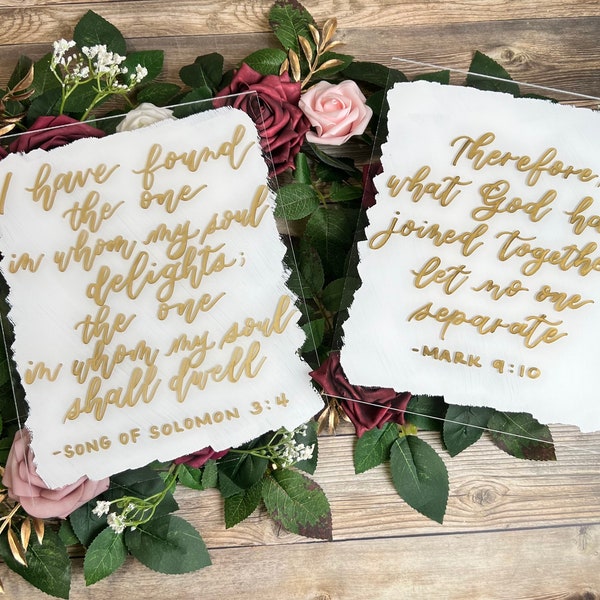 I have found
the one
in whom my soul
delights;
the one
in whom my soul
shall dwell
-SONG OF SOLOMON 3:4
Therefore,
what God has
joined together
let no one
separate
-MARK 9:10